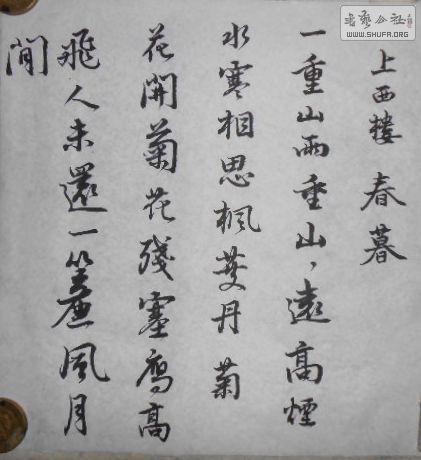 書藝公社
WWW.SHUFA.ORG
上西樓 春暮
一重山兩重山、遠高煙
水寒相思楓葉丹 菊
花開菊花殘塞鴈高
飛人未還一簾風月
閒